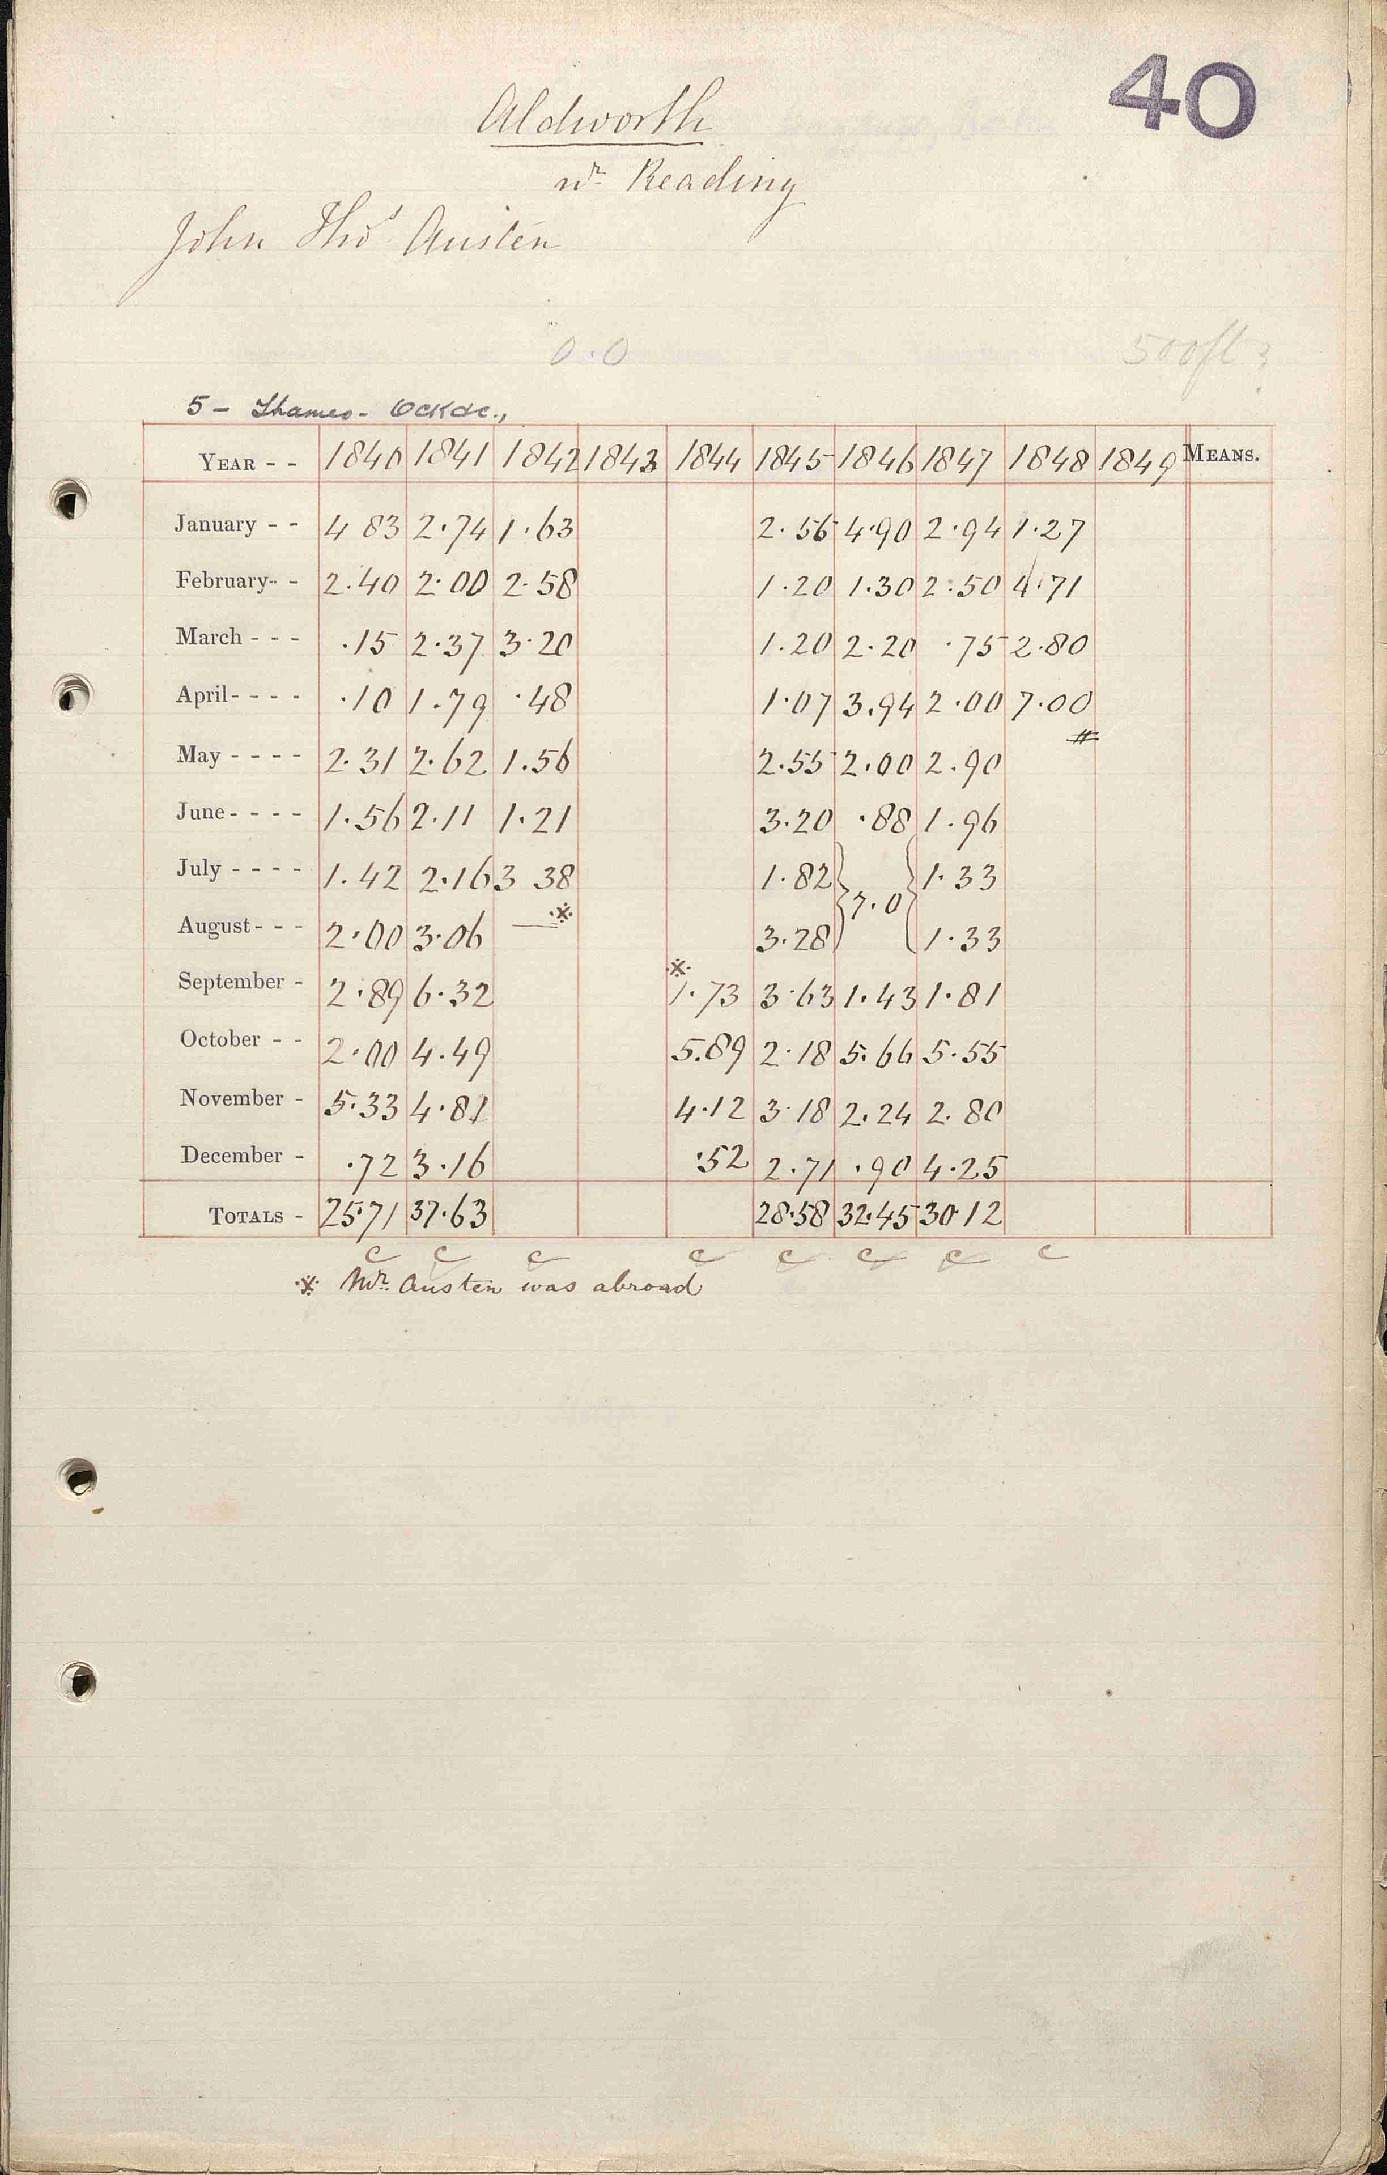 40
Aldworth
nr Reading
John Thos Austen
0.0 500ft?
5 - Thames - Ock &c.,
YEAR - - 1840 1841 1842 1843 1844 1845 1846 1847 1848 1849 MEANS.
January - - 4 83 2.74 1.63 2.56 4.90 2.94 1.27
February - - 2.40 2.00 2.58 1.20 1.30 2.50 4.71
March - - - .15 2.37 3.20 1.20 2.20 .75 2.80
April - - - - .10 1.79 .48 1.07 3.94 2.00 7.00
May - - - - 2.31 2.62 1.56 2.55 2.00 2.90
June - - - - 1.56 2.11 1.21 3.20 .88 1.96
July - - - - 1.42 2.16 3 38 1.82 } 7.0 { 1.33
August - - - 2.00 3.06 — ※ 3.28 1.33
September - 2.89 6.32 ※ 1.73 3.63 1.43 1.81
October - - 2.00 4.49 5.89 2.18 5.66 5.55
November - 5.33 4.81 4.12 3.18 2.24 2.80
December - .72 3.16 .52 2.71 .90 4.25
TOTALS - 25.71 37.63 28.58 32.45 30.12
c c c c c c c c
※ Mr. Austen was abroad